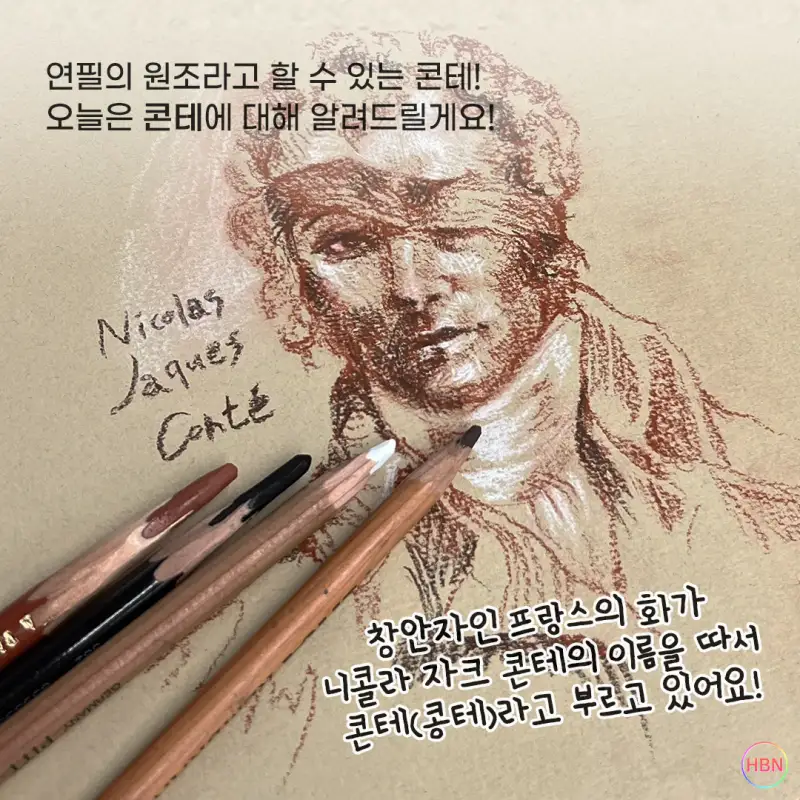 연필의 원조라고 할 수 있는 콘테!
오늘은 콘테에 대해 알려드릴게요!
Nicolas
Jaques
Conté
창안자인 프랑스의 화가
니콜라 자크 콘테의 이름을 따서
콘테(콩테)라고 부르고 있어요!
HBN